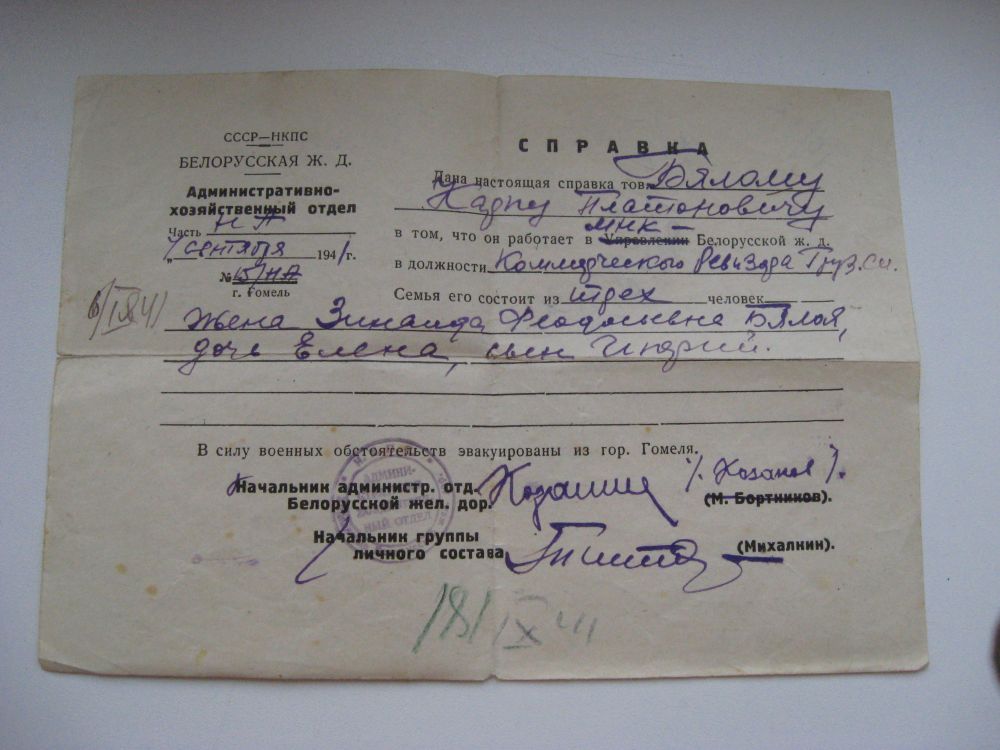 СССР—НКПС
БЕЛОРУССКАЯ Ж. Д.
Административно-
хозяйственный отдел
Часть НП
"7 сентября 1941 г.
№ 15/НА
г. Гомель
6/IX 41
СПРАВКА
Дана настоящая справка тов. Бялому
Карпу Платоновичу
в том, что он работает в Управлении Белорусской ж. д.
в должности Коммерческого Ревизора Груз.
Семья его состоит из трех человек
Жена Зинаида Феодосьевна Бялая,
дочь Елена, сын Андрей.
В силу военных обстоятельств эвакуированы из гор. Гомеля.
Начальник администр. отд.
Белорусской жел. дор.
(М. Бортников).
Начальник группы
личного состава
(Михалкин).
АДМИНИ-
НЫЙ ОТДЕЛ
18/IX 41